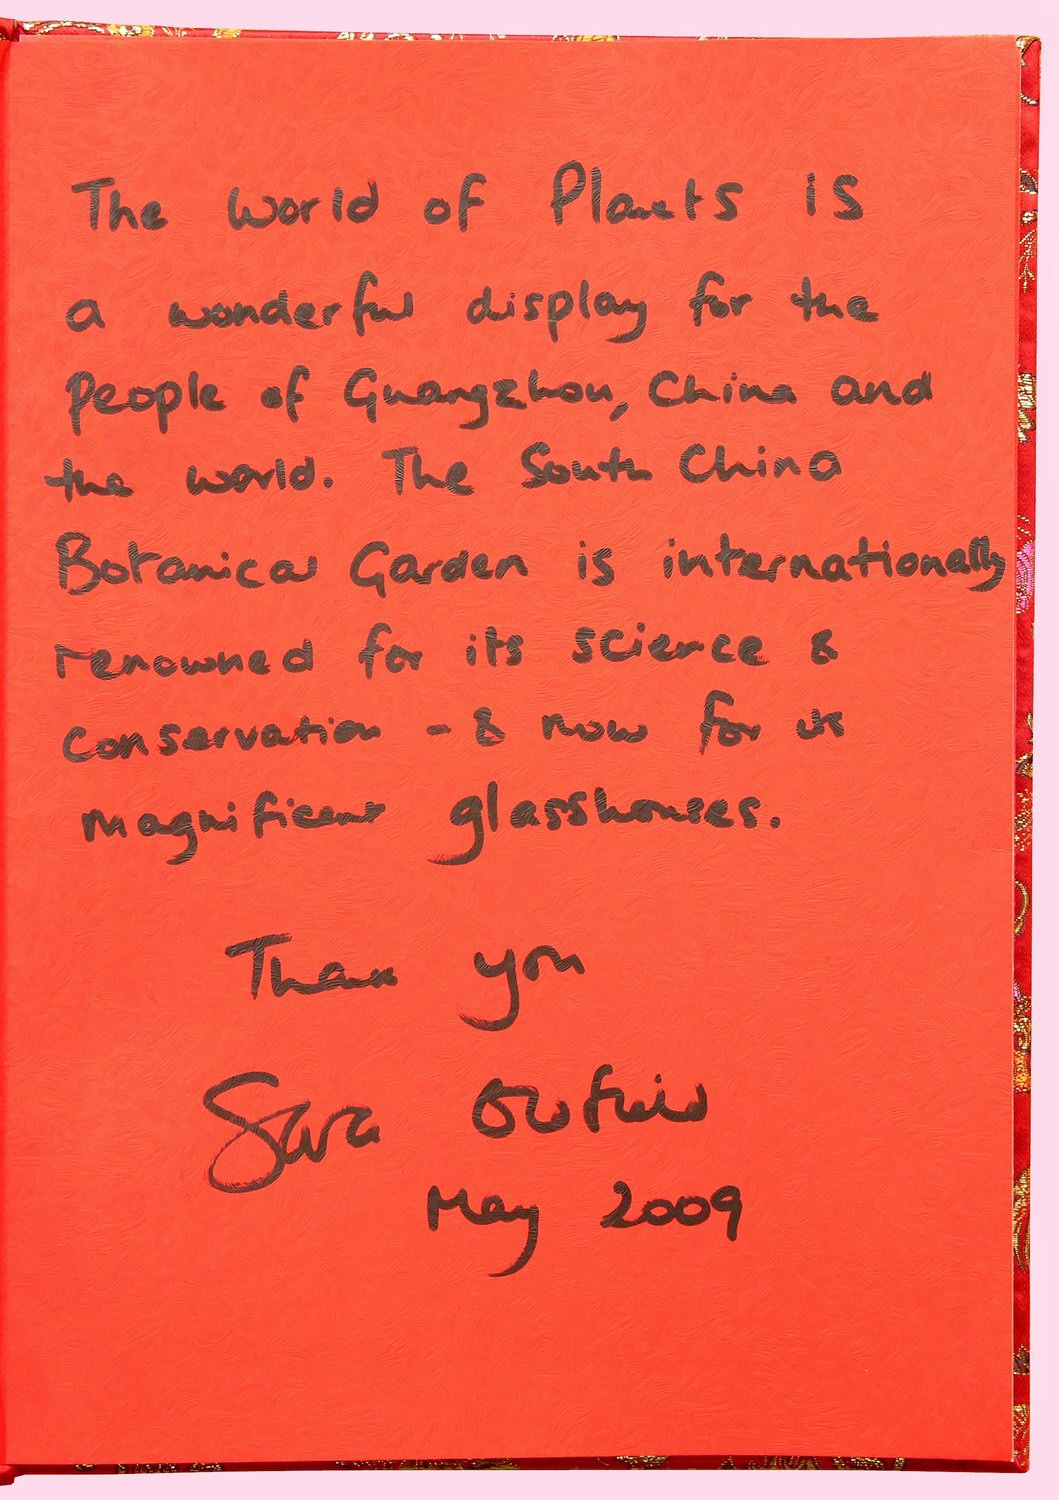 The World of Plants is
a wonderful display for the
people of Guangzhou, China and
the world. The South China
Botanical Garden is internationally
renowned for its science &
conservation - & now for its
magnificent glasshouses.
Thank you
Sara Oldfield
May 2009